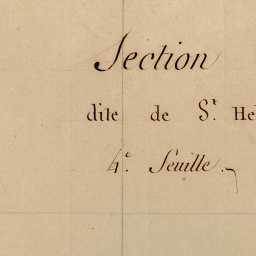 Section
dite de St. He
4e. Feuille.